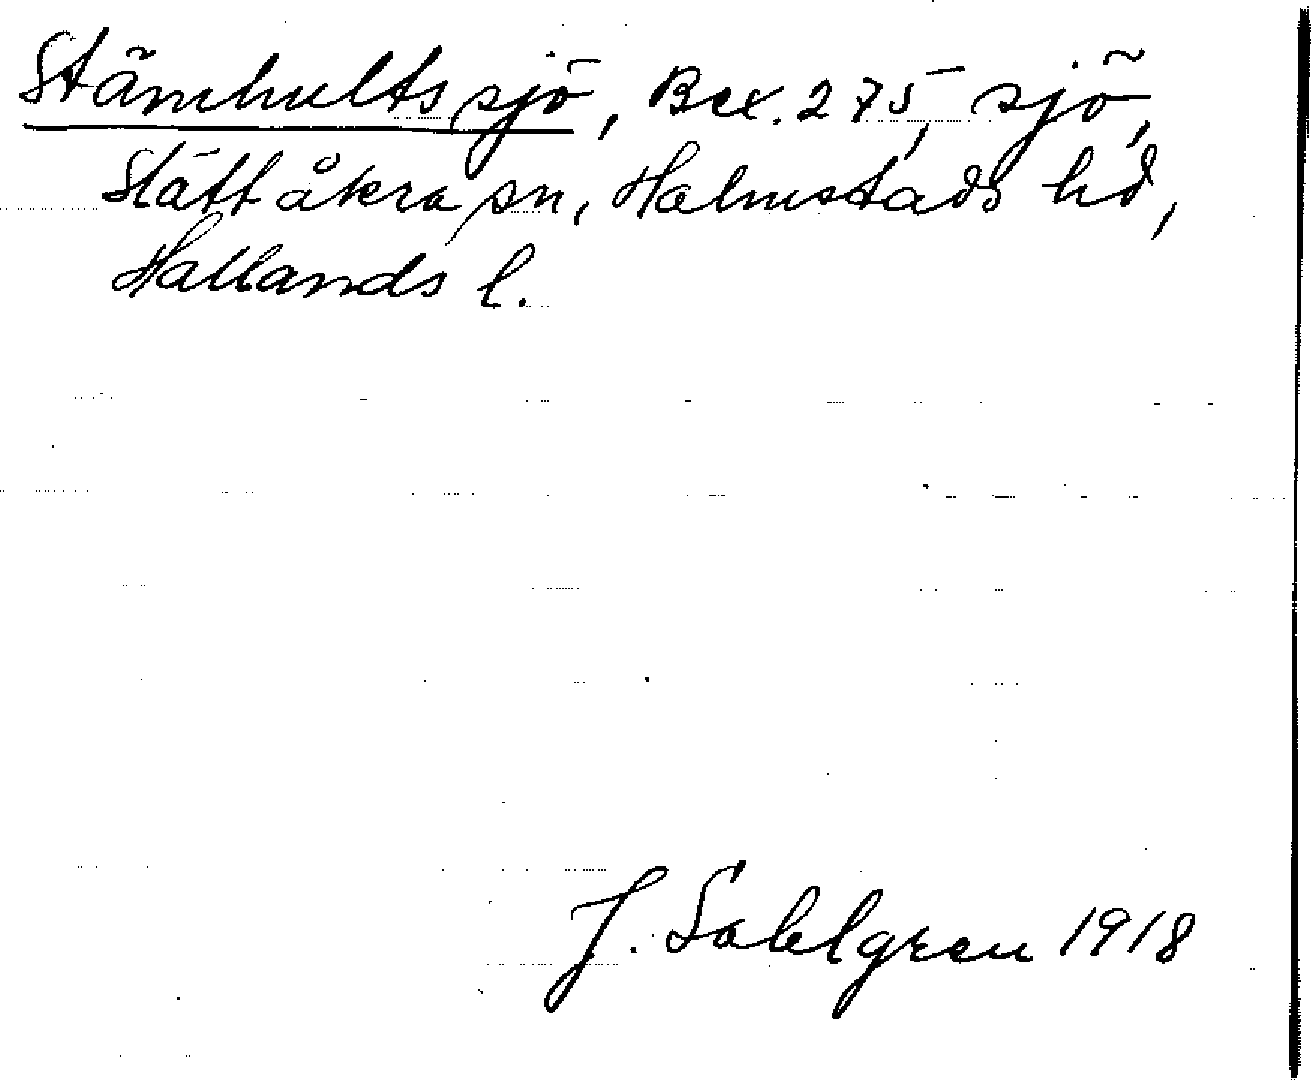 Stämhultssjö, Bex. 275, sjö,
Slättåkra sn, Halmstads hd,
Hallands l.
J. Sahlgren 1918